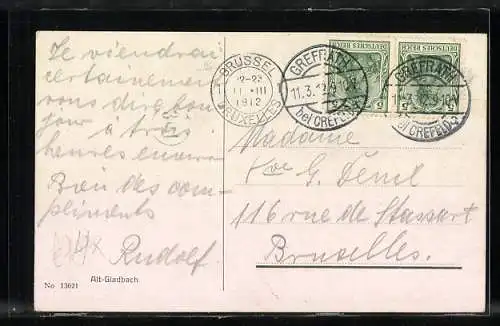 Je viendrai
certainement
vous dire bon
jour à trois
heures environ
Bien des com-
pliments
Rudolf
Alt-Gladbach
No 13021
BRÜSSEL
11 III
1912
BRUXELLES
GREFRATH
11.3.12
bei CREFELD
DEUTSCHES REICH
5
DEUTSCHES REICH
5
GREFRATH
bei CREFELD
Madame
Vve G.
116 rue de Stassart
Bruxelles.